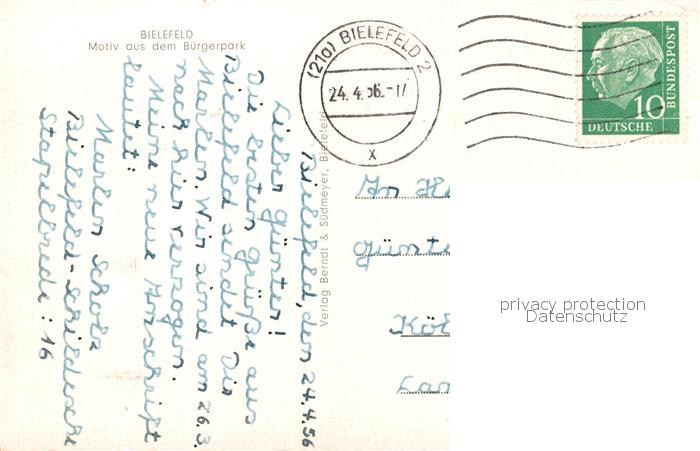 BIELEFELD
Motiv aus dem Bürgerpark
Bielefeld, den 24.4.56
Lieber Günter!
Die besten Grüße aus
Bielefeld sendet Dir
Marlen. Wir sind am 26.3.
nach hier verzogen.
Meine neue Anschrift
lautet:
Marlen Scholz
Bielefeld-Schildesche
Stapelbrede: 16
Verlag Berndt & Südmeyer, Bielefeld
(21a) BIELEFELD 2
24.4.56.-17
x
10
DEUTSCHE
BUNDESPOST
An He
Günte
Köl
privacy protection
Datenschutz